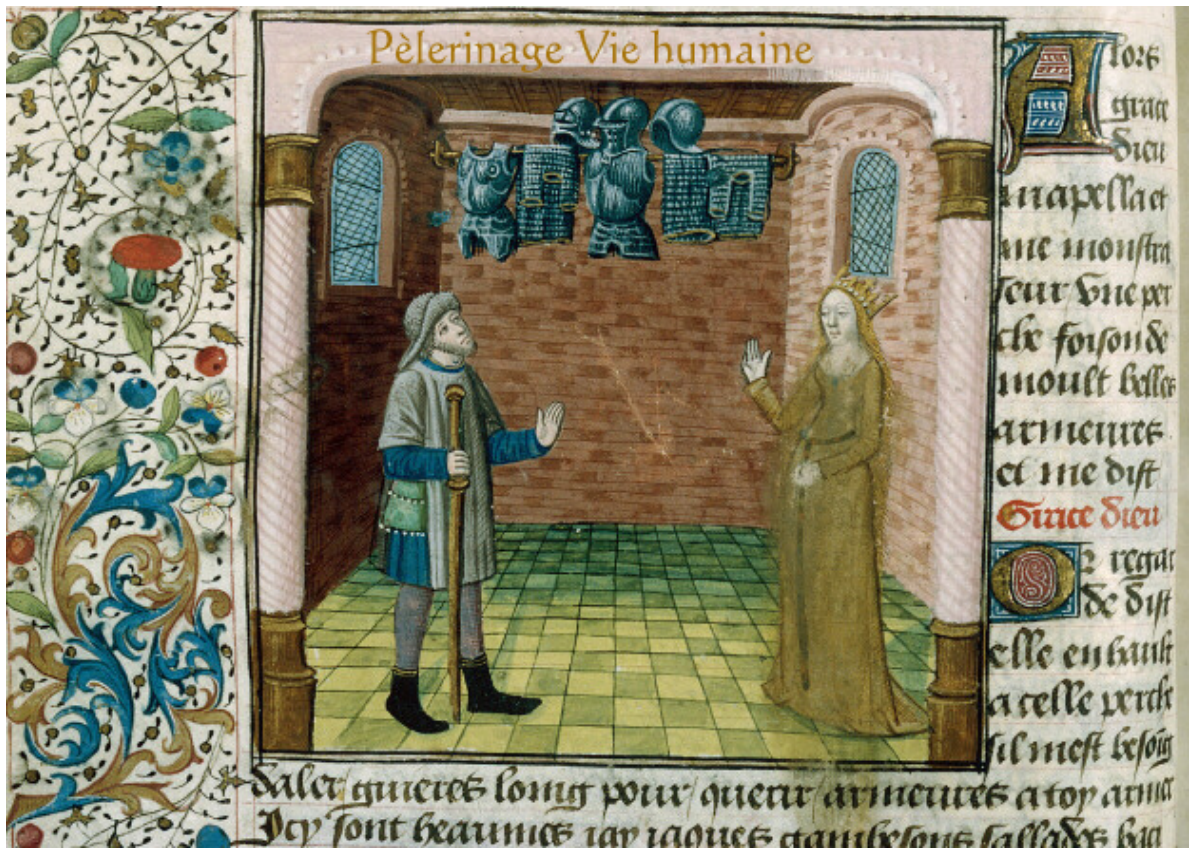 Pèlerinage Vie humaine
Alors
grace
dieu
mapella et
me monstra
seur vne per
che foison de
moult belles
armeures
et me dist
Grace dieu
Or regar
de dist
elle en hault
a celle perche
sil mest besoig
daler / guieres loing pour / querir / armeures a toy armer
Icy sont heaumes iaques gambesons sallades